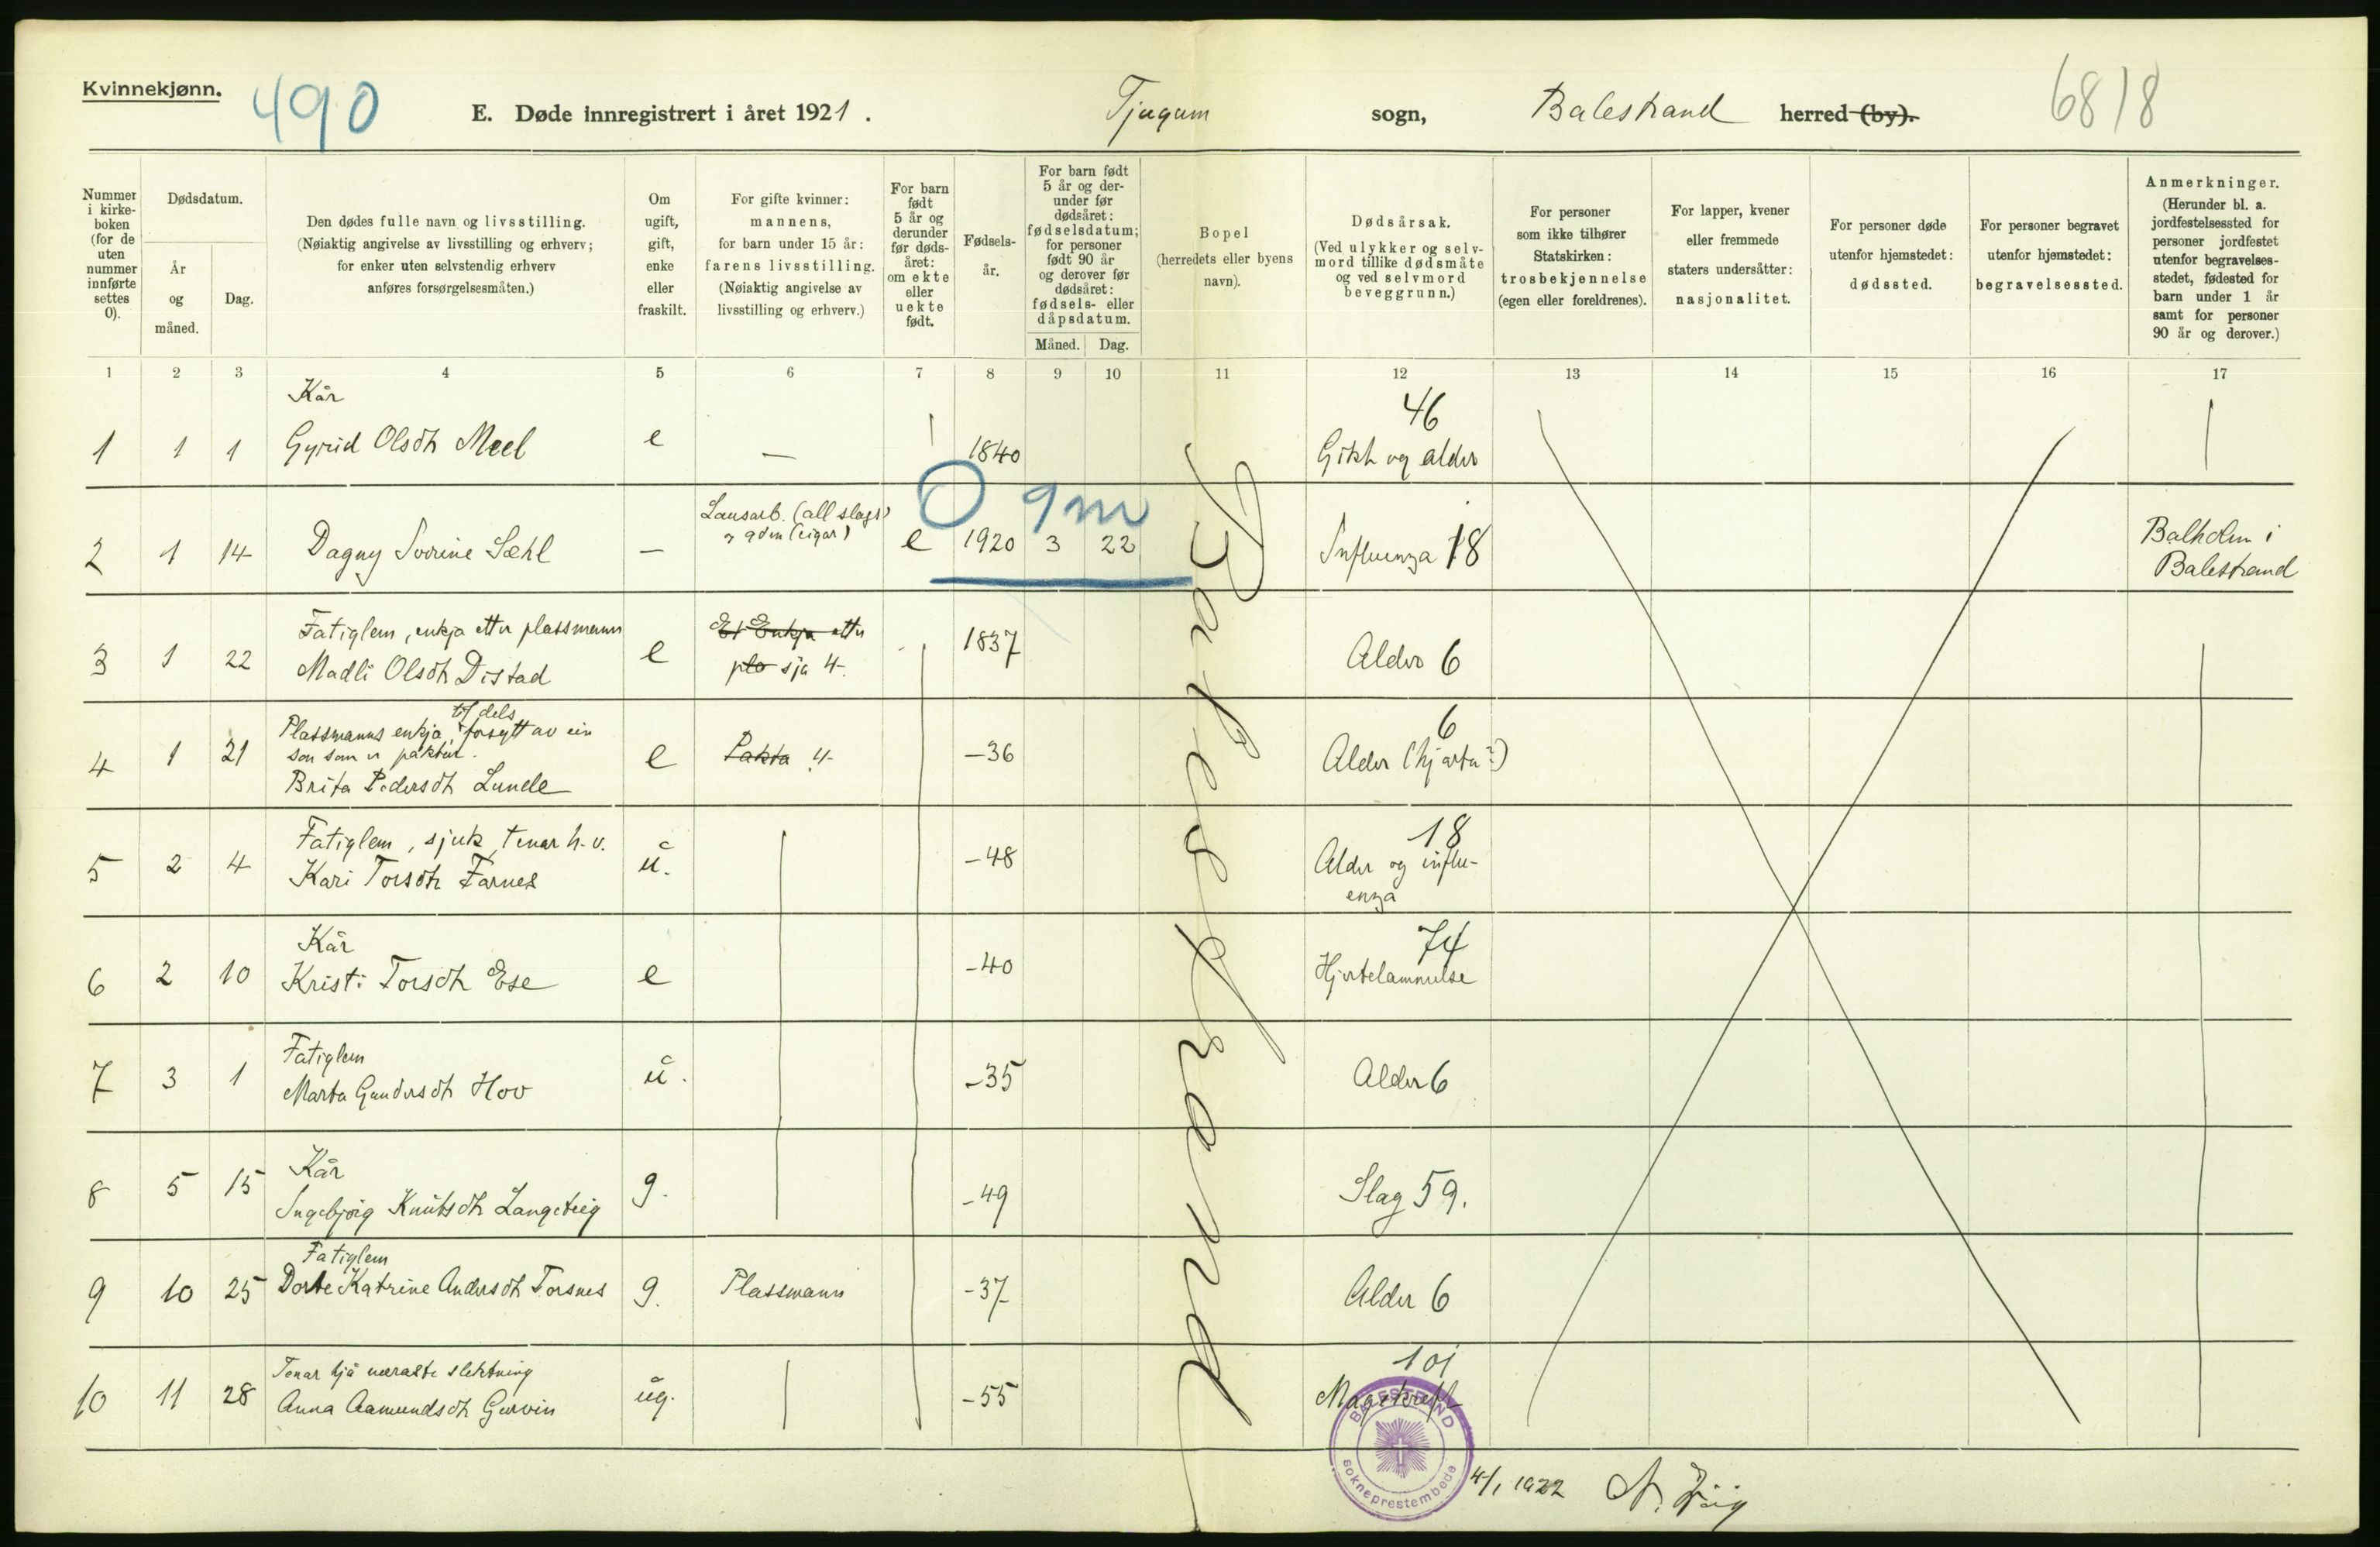 Kvinnekjønn.
490
E. Døde innregistrert i året 1921.
Tjugum sogn, Balestrand herred (by).
6818
Nummer i kirkeboken (for de uten nummer innførte settes 0).
Dødsdatum.
År og måned.
Dag.
Den dødes fulle navn og livsstilling.
(Nøiaktig angivelse av livsstilling og erhverv;
for enker uten selvstendig erhverv
anføres forsørgelsesmåten.)
Om ugift, gift, enke eller fraskilt.
For gifte kvinner:
mannens,
for barn under 15 år:
farens livsstilling.
(Nøiaktig angivelse av
livsstilling og erhverv.)
For barn født 5 år og derunder før dødsåret: om ekte eller uekte født.
Fødselsår.
For barn født 5 år og derunder før dødsåret: fødselsdatum; for personer født 90 år og derover før dødsåret: fødsels- eller dåpsdatum.
Måned.
Dag.
Bopel
(herredets eller byens
navn).
Dødsårsak.
(Ved ulykker og selvmord tillike dødsmåte og ved selvmord beveggrunn.)
For personer
som ikke tilhører
Statskirken:
trosbekjennelse
(egen eller foreldrenes).
For lapper, kvener
eller fremmede
staters undersåtter:
nasjonalitet.
For personer døde
utenfor hjemstedet:
dødssted.
For personer begravet
utenfor hjemstedet:
begravelsessted.
Anmerkninger.
(Herunder bl. a.
jordfestelsessted for
personer jordfestet
utenfor begravelsesstedet, fødested for
barn under 1 år
samt for personer
90 år og derover.)
1 2 3 4 5 6 7 8 9 10 11 12 13 14 15 16 17
Kår 46
1 1 1 Gyrid Olsdtr Meel e — 1840 Gikt og alder
0 9 m
Lausarb. (all slags)
2 1 14 Dagny Sverine Sæhl — e 1920 3 22 Influenza 18 Balholm i
Balestrand
Balestrand
Fatiglem, enkja etter plassmann Et Enkja etter
3 1 22 Madli Olsdtr Distad e pla sjå 4. 1837 Alder 6
til dels
Plassmanns enkja, forsytt av ein 6
son som er paktar.
4 1 21 Brita Pedersdtr Lunde e Pakta 4 -36 Alder (hjarta?)
Fatiglem, sjuk, tenar h. v. 18
5 2 4 Kari Torsdtr Farnes u. -48 Alder og influ-
enza
Kår 74
6 2 10 Kristi Torsdtr Ese e -40 Hjertelammelse
Fatiglem
7 3 1 Marta Gundersdtr Hov u. -35 Alder 6
Kår
8 5 15 Ingebjørg Knutsdtr Langeteig g. -49 Slag 59.
Fatiglem
9 10 25 Dorte Katrine Andersdtr Torsnes g. Plassmann -37 Alder 6
Tenar hjå næraste slektning 101
10 11 28 Anna Aamundsdtr Gurvin ug. -55 Magekreft
BALESTRAND
sokneprestembede
4/1 1922